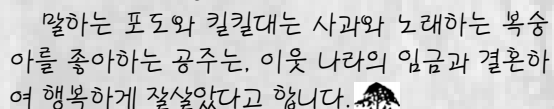 말하는 포도와 킬킬대는 사과와 노래하는 복숭
아를 좋아하는 공주는, 이웃 나라의 임금과 결혼하
여 행복하게 잘살았다고 합니다.